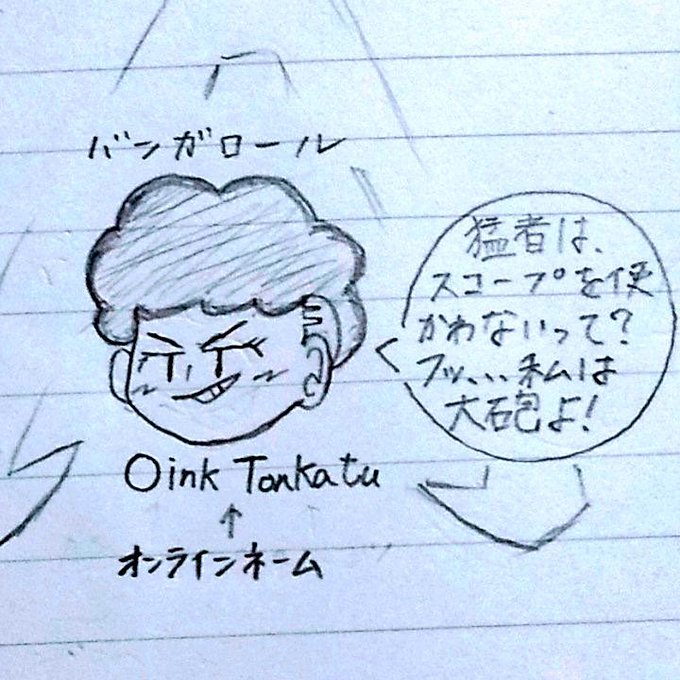 バンガロール
猛者は、
スコープを使
かわないって?
フッ、、、私は
大砲よ!
Oink Tonkatu
↑
オンラインネーム